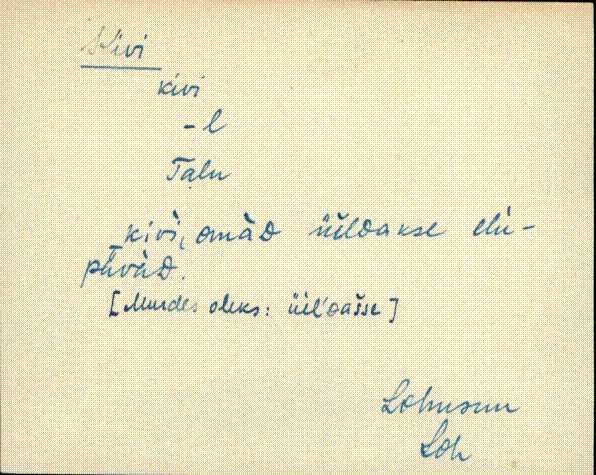 Kivi
kivi
- l
Talu
kivi, omàD üèlDakse elù-
pävàD.
[Murdes oleks: üèl'Dašse]
Lohusuu
Loh